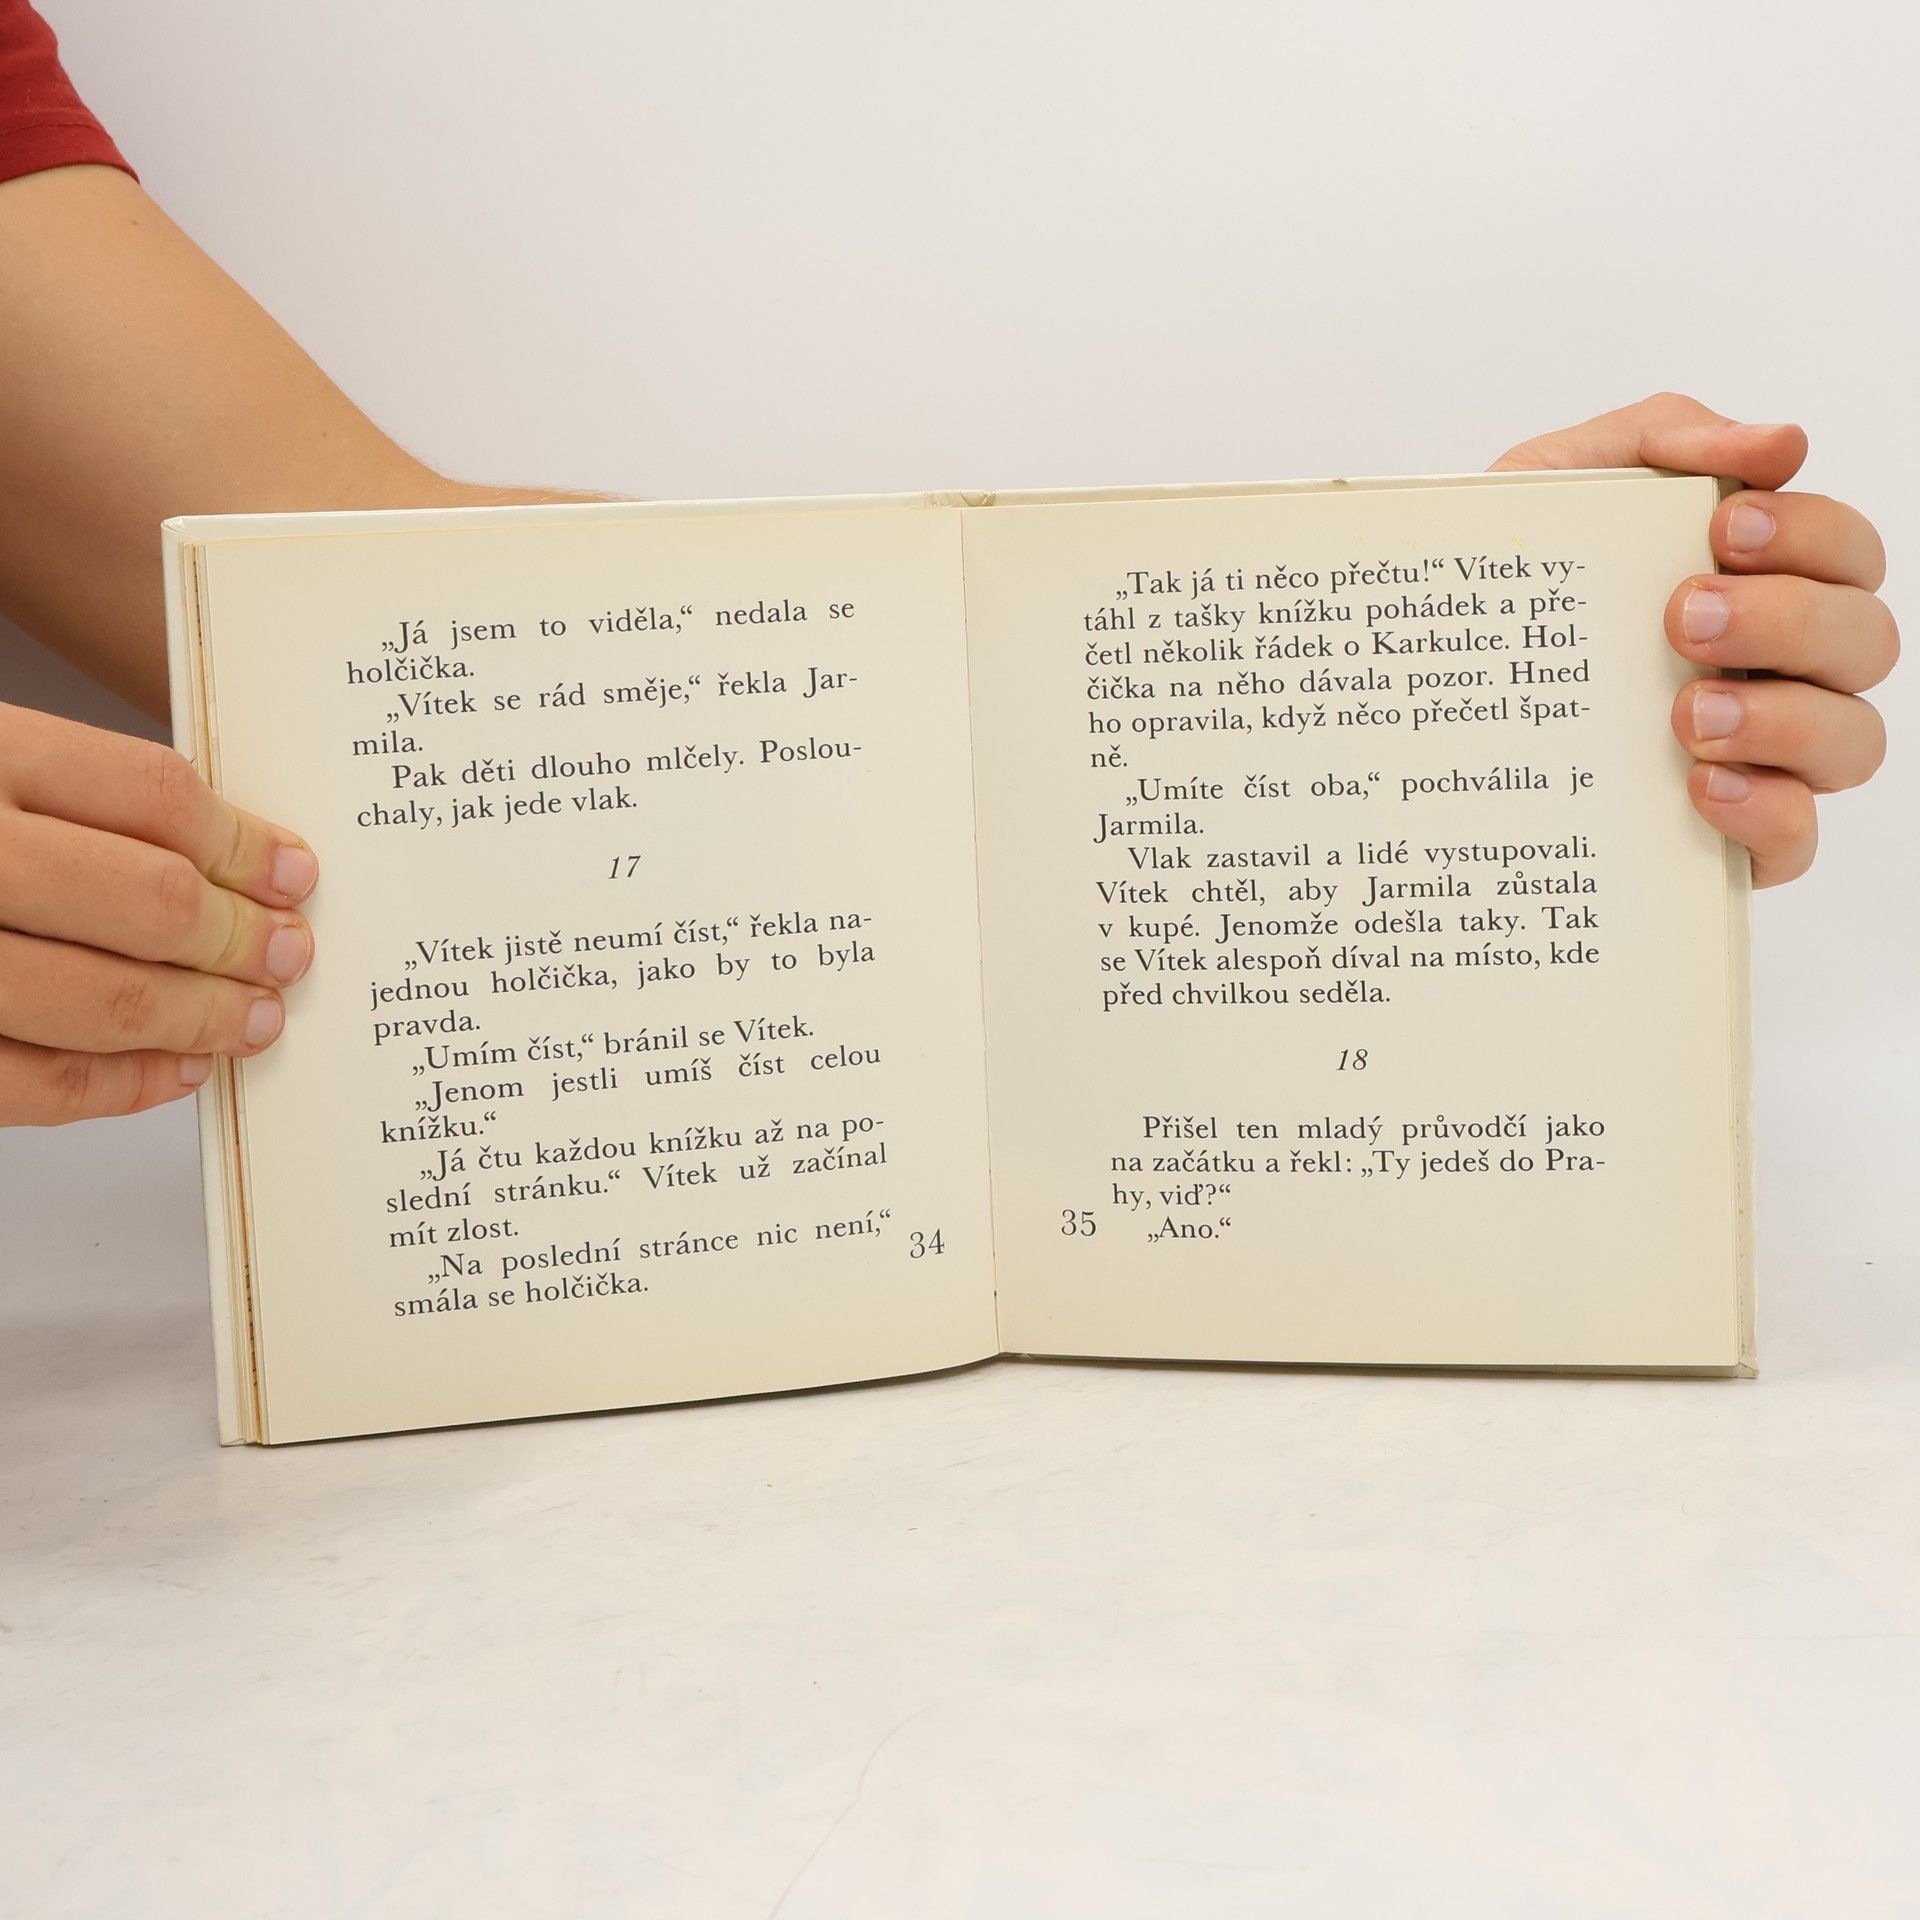 „Já jsem to viděla,“ nedala se
holčička.
„Vítek se rád směje,“ řekla Jar-
mila.
Pak děti dlouho mlčely. Poslou-
chaly, jak jede vlak.
17
„Vítek jistě neumí číst,“ řekla na-
jednou holčička, jako by to byla
pravda.
„Umím číst,“ bránil se Vítek.
„Jenom jestli umíš číst celou
knížku.“
„Já čtu každou knížku až na po-
slední stránku.“ Vítek už začínal
mít zlost.
„Na poslední stránce nic není,“
smála se holčička.
34
„Tak já ti něco přečtu!“ Vítek vy-
táhl z tašky knížku pohádek a pře-
četl několik řádek o Karkulce. Hol-
čička na něho dávala pozor. Hned
ho opravila, když něco přečetl špat-
ně.
„Umíte číst oba,“ pochválila je
Jarmila.
Vlak zastavil a lidé vystupovali.
Vítek chtěl, aby Jarmila zůstala
v kupé. Jenomže odešla taky. Tak
se Vítek alespoň díval na místo, kde
před chvilkou seděla.
18
Přišel ten mladý průvodčí jako
na začátku a řekl: „Ty jedeš do Pra-
hy, viď?“
„Ano.“
35